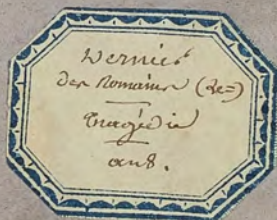 Dernier
des Romains (Le=)
Tragédie
an 8.